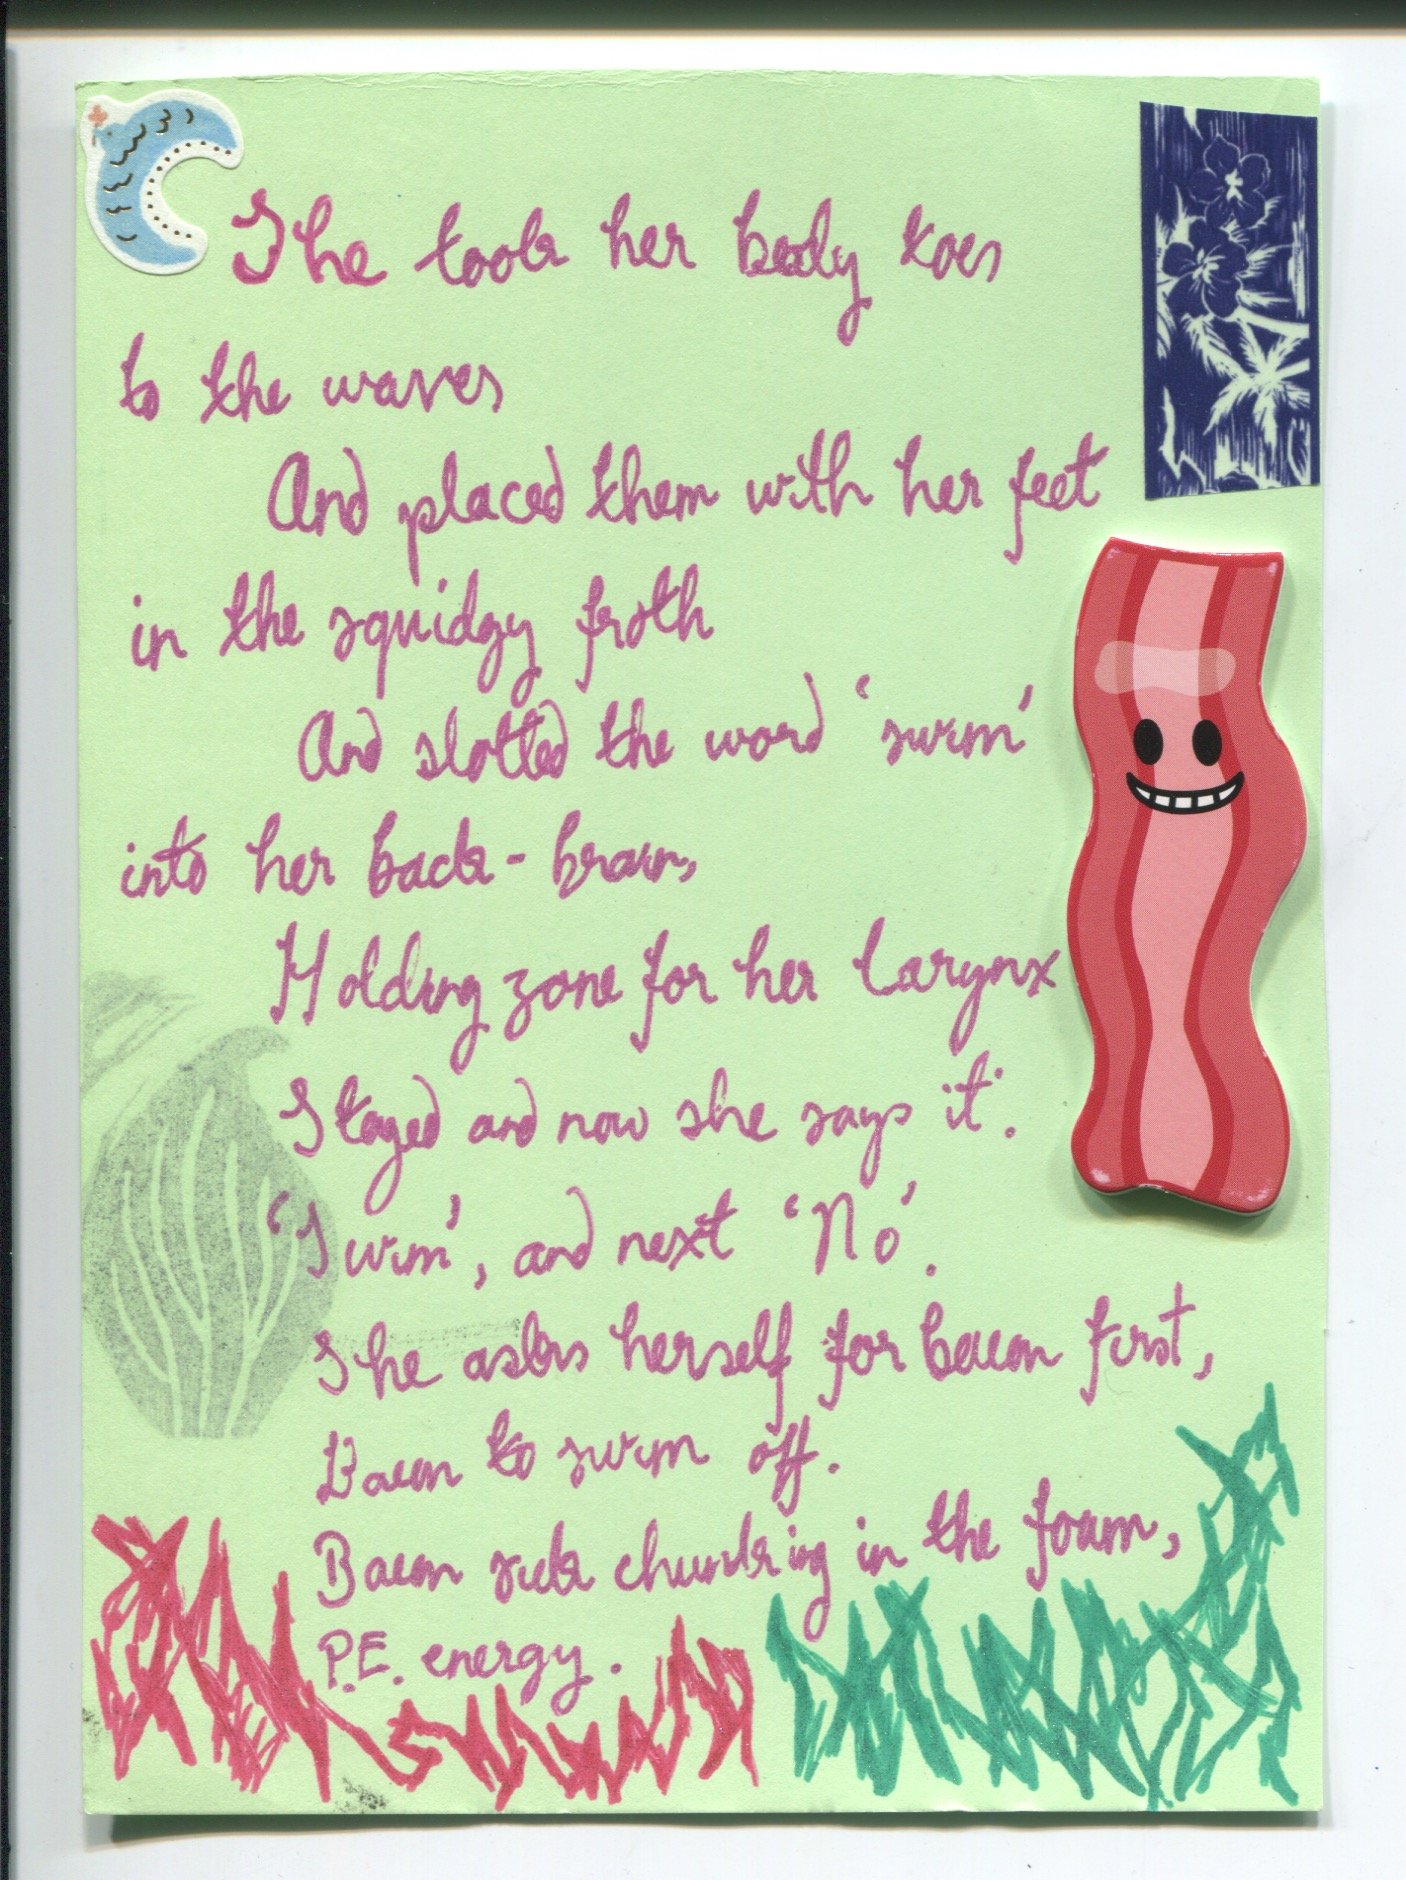 She took her body toes
to the waves
And placed them with her feet
in the squidgy froth
And slotted the word 'swim'
into her back-brain,
Holding zone for her larynx
Staged and now she says it.
'Swim', and next 'No'.
She asks herself for bacon first,
Bacon to swim off.
Bacon sick chunking in the foam,
P.E. energy.